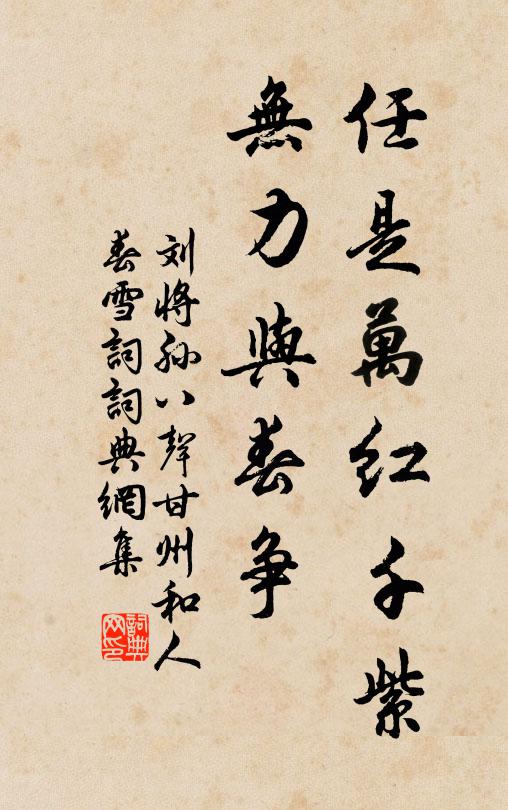 任是萬紅千紫
無力與春争
刘將孙八聲甘州和人
春雪詞詞典網集
詞典
网印